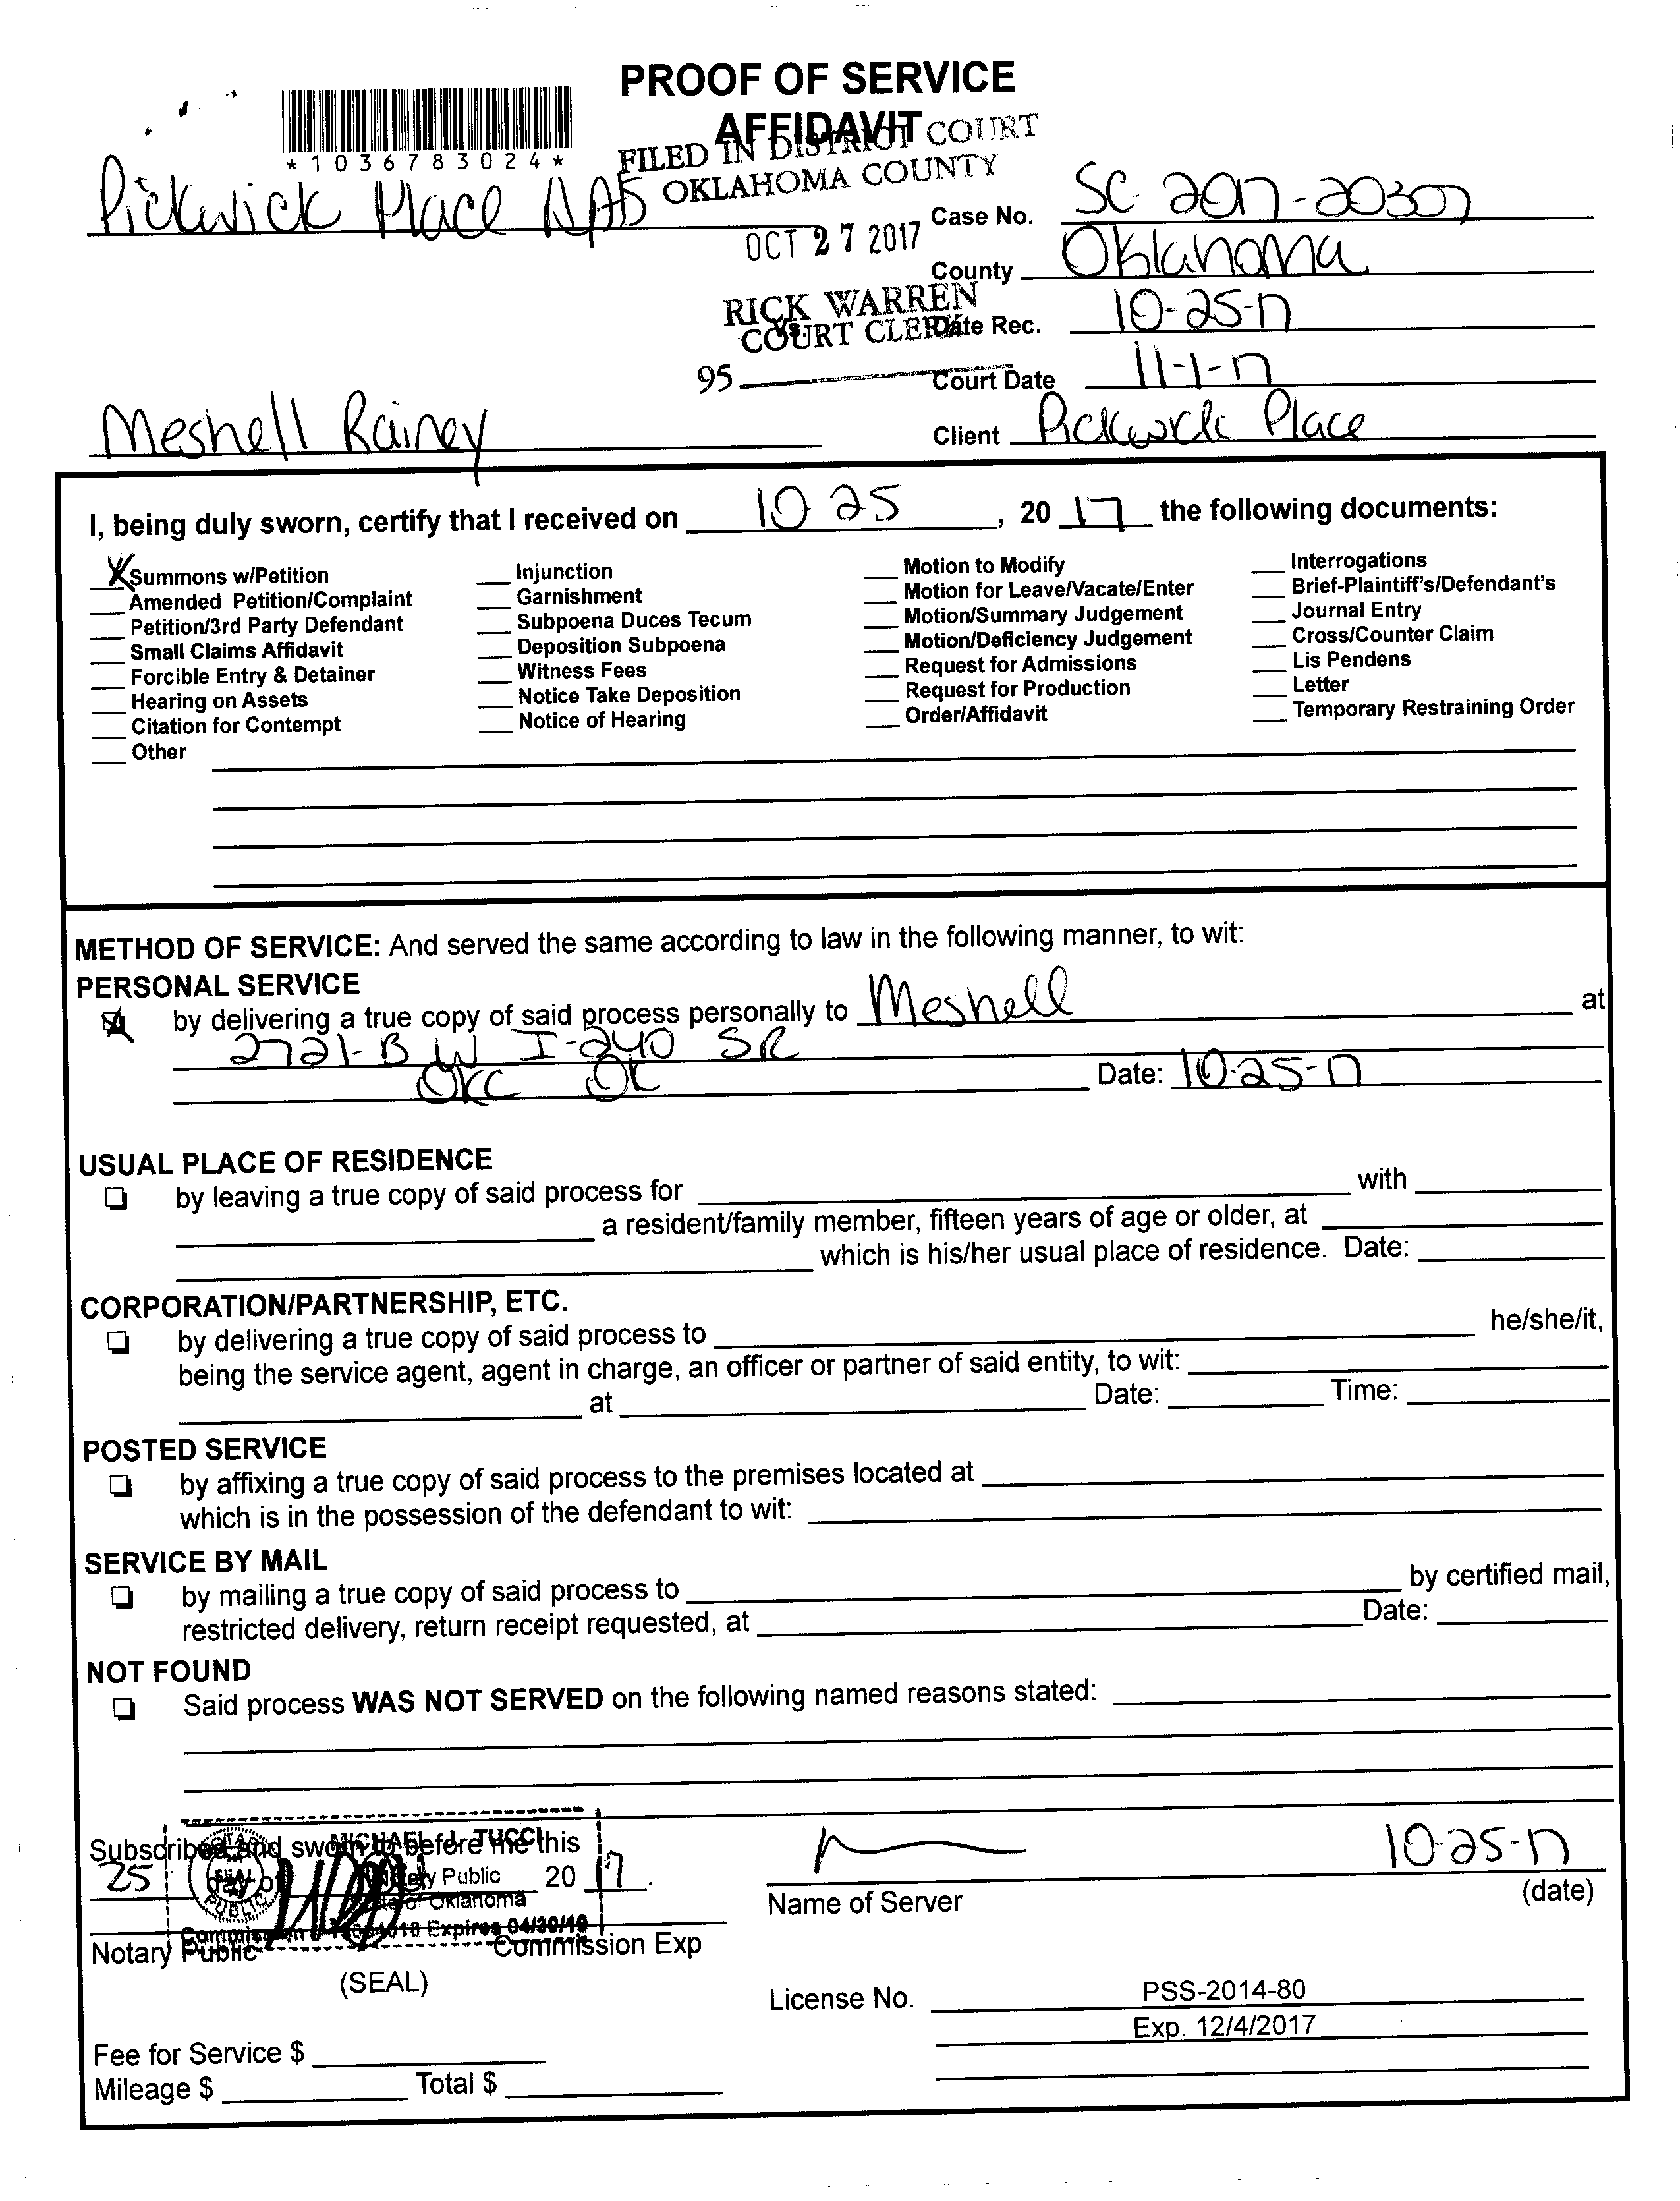 PROOF OF SERVICE
AFFIDAVIT
*1036783024*
FILED IN DISTRICT COURT
OKLAHOMA COUNTY
Pickwick Place
Case No. SC-2017-20307
OCT 27 2017
County Oklahoma
RICK WARREN
COURT CLERK
vs.
Date Rec. 10-25-17
95
Court Date 11-1-17
Meshell Rainey
Client Pickwick Place
I, being duly sworn, certify that I received on 10 25, 20 17 the following documents:
X Summons w/Petition
Amended Petition/Complaint
Petition/3rd Party Defendant
Small Claims Affidavit
Forcible Entry & Detainer
Hearing on Assets
Citation for Contempt
Other
Injunction
Garnishment
Subpoena Duces Tecum
Deposition Subpoena
Witness Fees
Notice Take Deposition
Notice of Hearing
Motion to Modify
Motion for Leave/Vacate/Enter
Motion/Summary Judgement
Motion/Deficiency Judgement
Request for Admissions
Request for Production
Order/Affidavit
Interrogations
Brief-Plaintiff's/Defendant's
Journal Entry
Cross/Counter Claim
Lis Pendens
Letter
Temporary Restraining Order
METHOD OF SERVICE: And served the same according to law in the following manner, to wit:
PERSONAL SERVICE
by delivering a true copy of said process personally to Meshell at
2721-B W I-240 SR
OKC OK Date: 10-25-17
USUAL PLACE OF RESIDENCE
by leaving a true copy of said process for with
a resident/family member, fifteen years of age or older, at
which is his/her usual place of residence. Date:
CORPORATION/PARTNERSHIP, ETC.
by delivering a true copy of said process to he/she/it,
being the service agent, agent in charge, an officer or partner of said entity, to wit:
at Date: Time:
POSTED SERVICE
by affixing a true copy of said process to the premises located at
which is in the possession of the defendant to wit:
SERVICE BY MAIL
by mailing a true copy of said process to by certified mail,
restricted delivery, return receipt requested, at Date:
NOT FOUND
Said process WAS NOT SERVED on the following named reasons stated:
Subscribed and sworn to before me this
MICHAEL J. TUCCI
25 day of 20 17.
Notary Public
State of Oklahoma
NOTARY
SEAL
PUBLIC
Expires 04/30/19
10-25-17
Name of Server (date)
Notary Public Commission Exp
(SEAL)
License No. PSS-2014-80
Exp. 12/4/2017
Fee for Service $
Mileage $ Total $